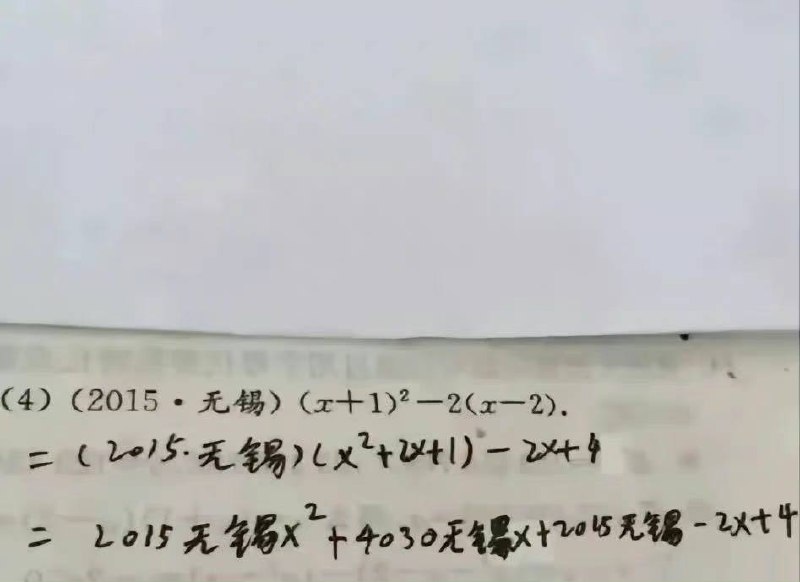 (4) (2015·无锡) (x+1)²-2(x-2).
= (2015·无锡)(x²+2x+1)-2x+4
= 2015无锡x²+4030无锡x+2015无锡-2x+4